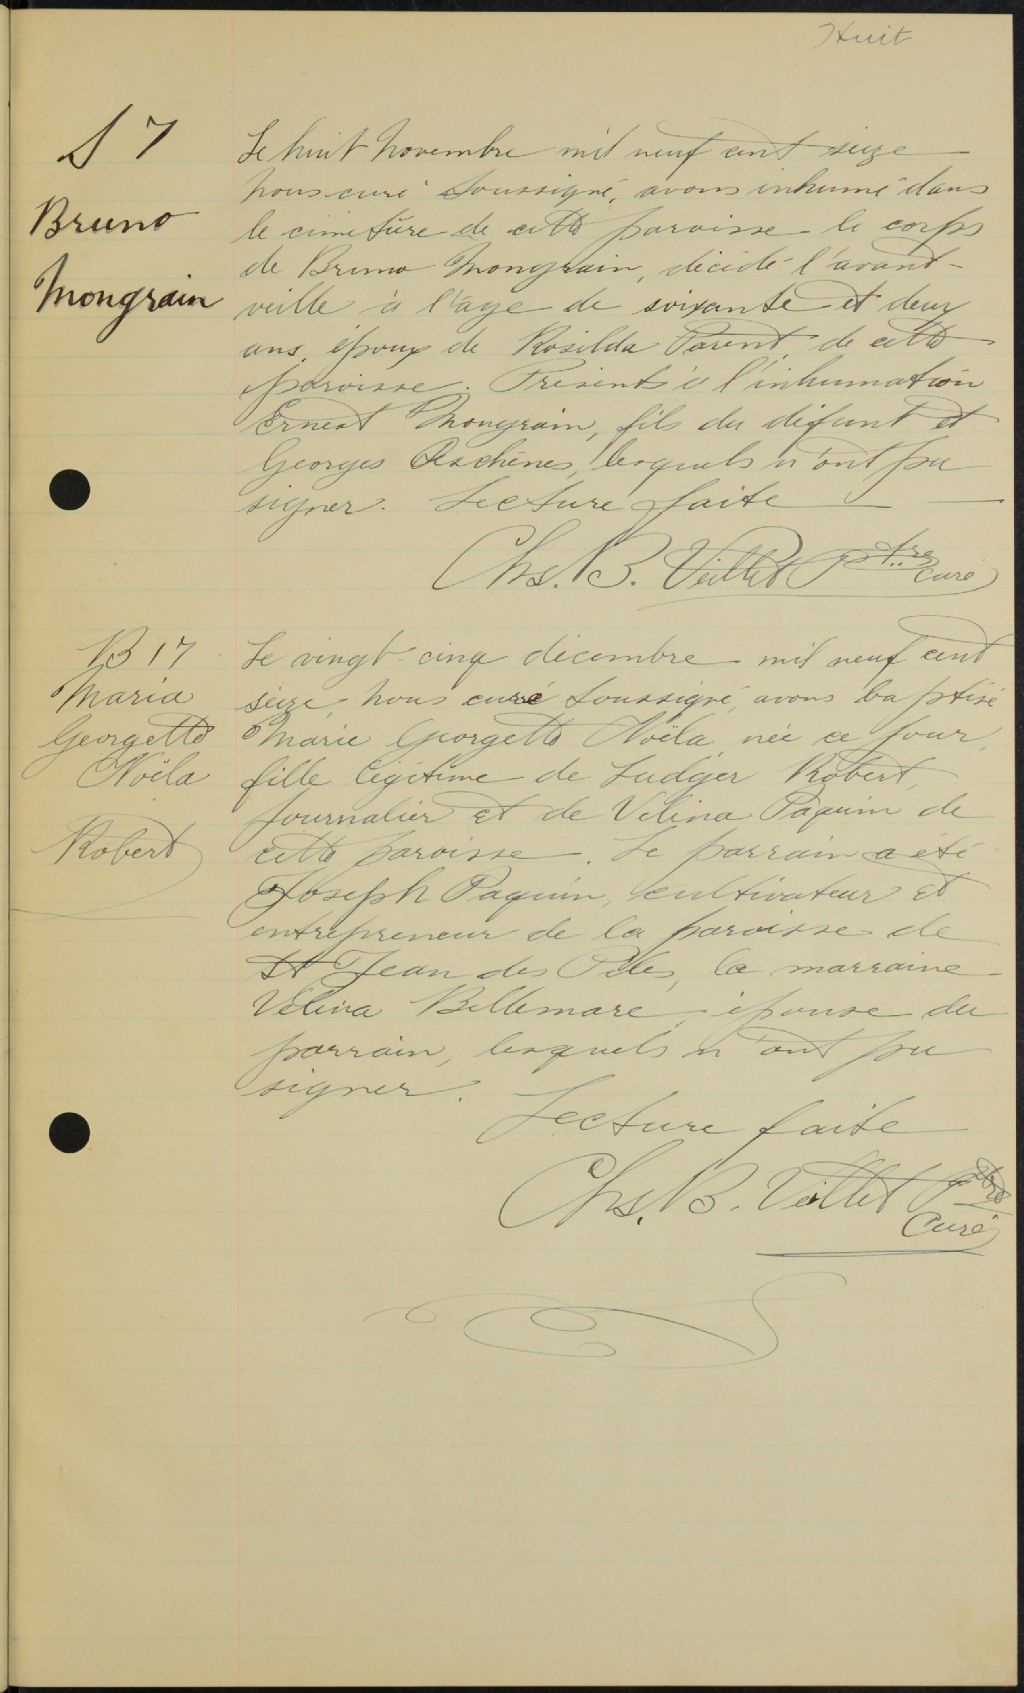 Huit
S 7
Bruno
Mongrain
Le huit Novembre mil neuf cent seize
nous curé soussigné, avons inhumé dans
le cimetière de cette paroisse le corps
de Bruno Mongrain, décédé l'avant-
veille à l'age de soixante et deux
ans, époux de Rosilda Parent, de cette
paroisse. Présents à l'inhumation
Ernest Mongrain, fils du défunt et
Georges Deschênes, lesquels n'ont pu
signer. Lecture faite
Chs. B. Veillet Ptre
curé
B 17
Maria
Georgette
Noëla
Robert
Le vingt-cinq décembre mil neuf cent
seize, nous curé soussigné, avons baptisé
Marie Georgette Noëla, née ce jour,
fille légitime de Ludger Robert,
journalier et de Vélina Paquin de
cette paroisse. Le parrain a été
Joseph Paquin, cultivateur et
entrepreneur de la paroisse de
St Jean des Piles, la marraine
Vélina Bellemare, épouse du
parrain, lesquels n'ont pu
signer.
Lecture faite
Chs. B. Veillet Ptre
Curé